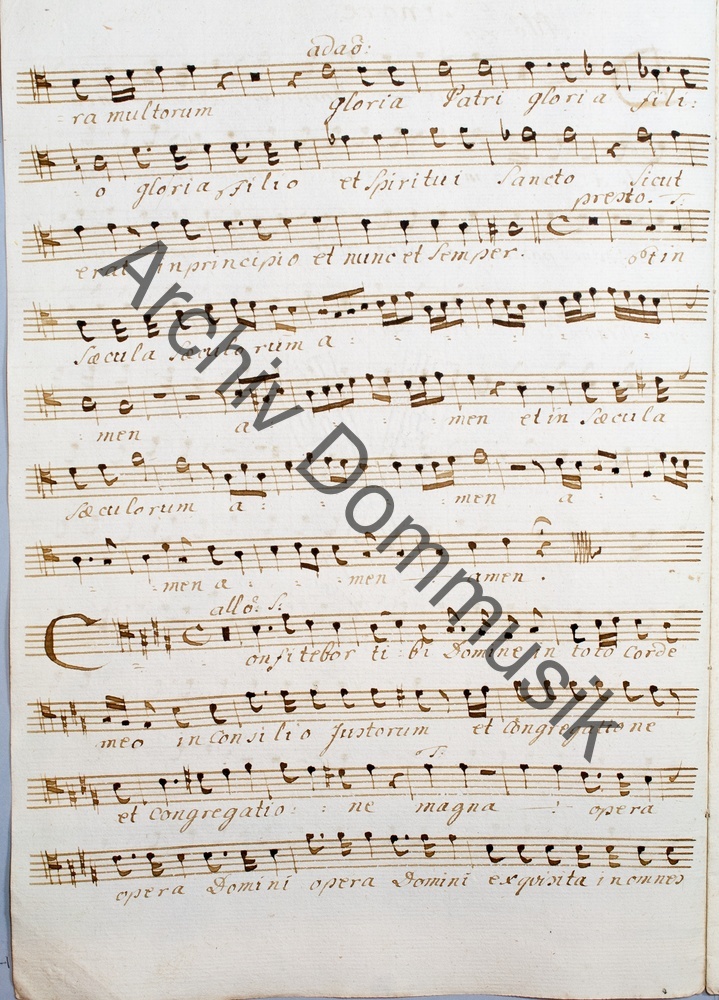 adaõ:
ra multorum gloria Patri gloria fili:
o gloria Filio et Spiritui Sancto Sicut
presto. S:
erat in principio et nunc et Semper. et in
Sæcula Sæculorum a
men a men et in Sæcula
Sæculorum a men a
men a men amen.
allõ: S:
Confitebor tibi Domine in toto Corde
meo in Consilio Justorum et Congregatione
S:
et Congregatio: : ne magna opera
opera Domini opera Domini exquisita in omnes
Archiv Dommusik